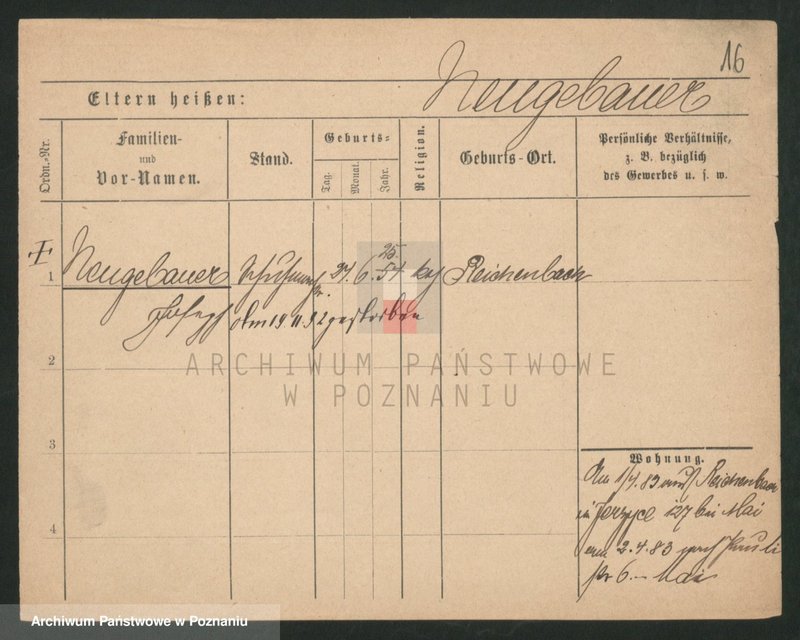 16
Eltern heißen:
Neugebauer
Ordn.-Nr.
Familien-
und
Vor-Namen.
Stand.
Geburts-
Tag.
Monat.
Jahr.
Religion.
Geburts-Ort.
Persönliche Verhältnisse,
z. B. bezüglich
des Gewerbes u. s. w.
25
1 Neugebauer 27 6 54 kat Reichenbach
Josef am 19 11 92 gestorben
ARCHIWUM PAŃSTWOWE
W POZNANIU
2
3
4
Wohnung.
Am 1/4.83 aus Reichenbach
in Jerzyce 127 bei Mai
am 2.4.83 nach Pauli
str 6 – Mai
Archiwum Państwowe w Poznaniu